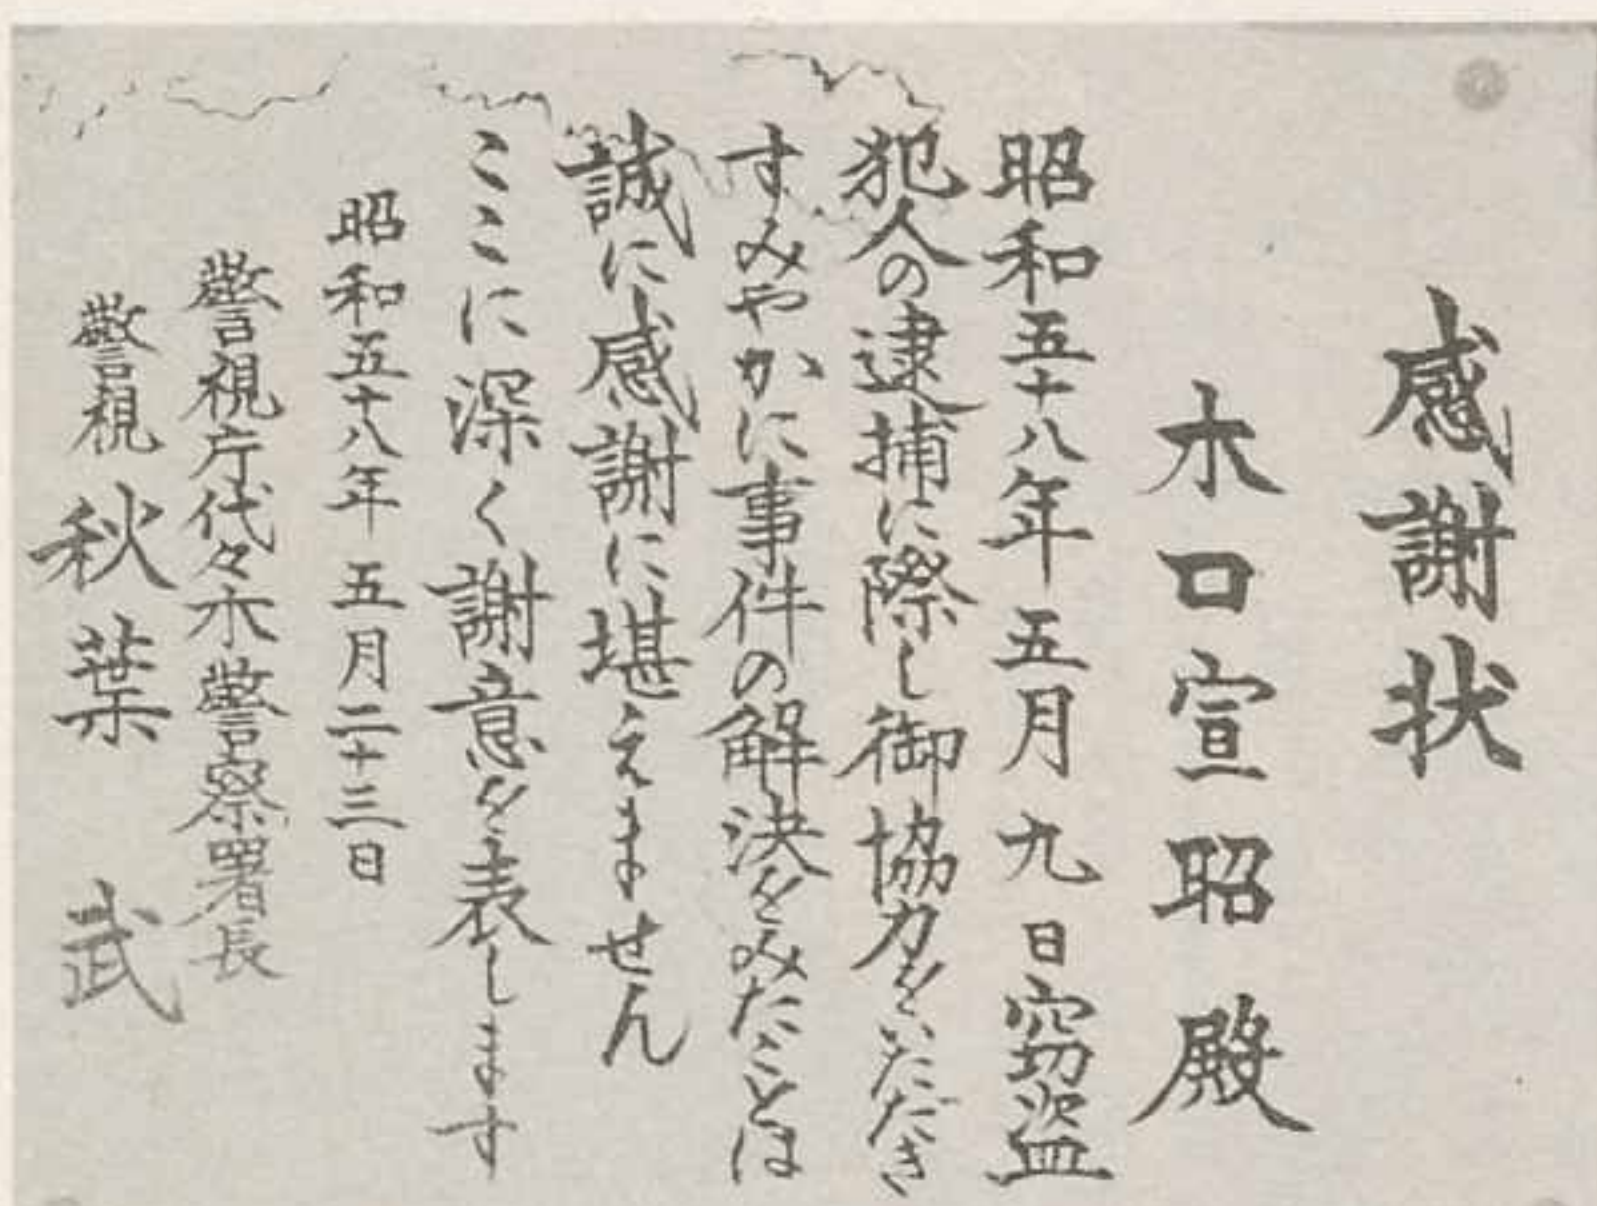 感謝状
木口宣昭殿
昭和五十八年五月九日窃盗
犯人の逮捕に際し御協力をいただき
すみやかに事件の解決をみたことは
誠に感謝に堪えません
ここに深く謝意を表します
昭和五十八年五月二十三日
警視庁代々木警察署長
警視秋葉武